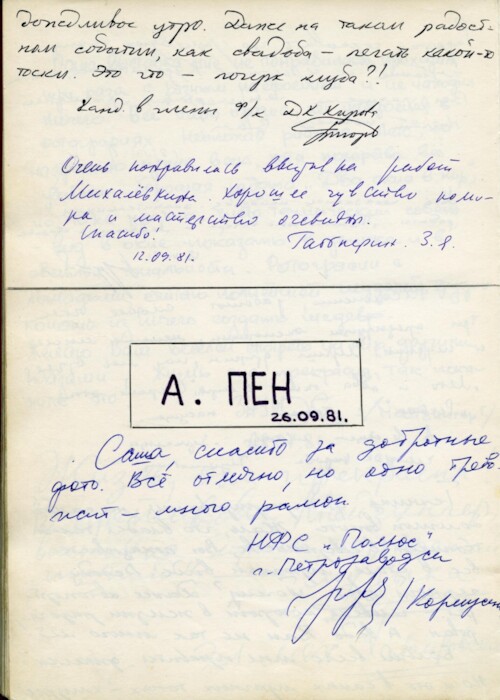 дождливое утро. Даже на таком радост-
ном событии, как свадьба – печать какой-то
тоски. Это что – почерк клуба?!
Канд. в члены ф/к ДК Кирова
Очень понравилась выставка работ
Михалёвкина. Хорошее чувство юмо-
ра и мастерство очевидны.
Спасибо!
12.09.81.
З. Я.
А. ПЕН
26.09.81.
Саша, спасибо за добротные
фото. Всё отлично, но одно трево-
жит – много рамок
НФС „Полюс"
г. Петрозаводск